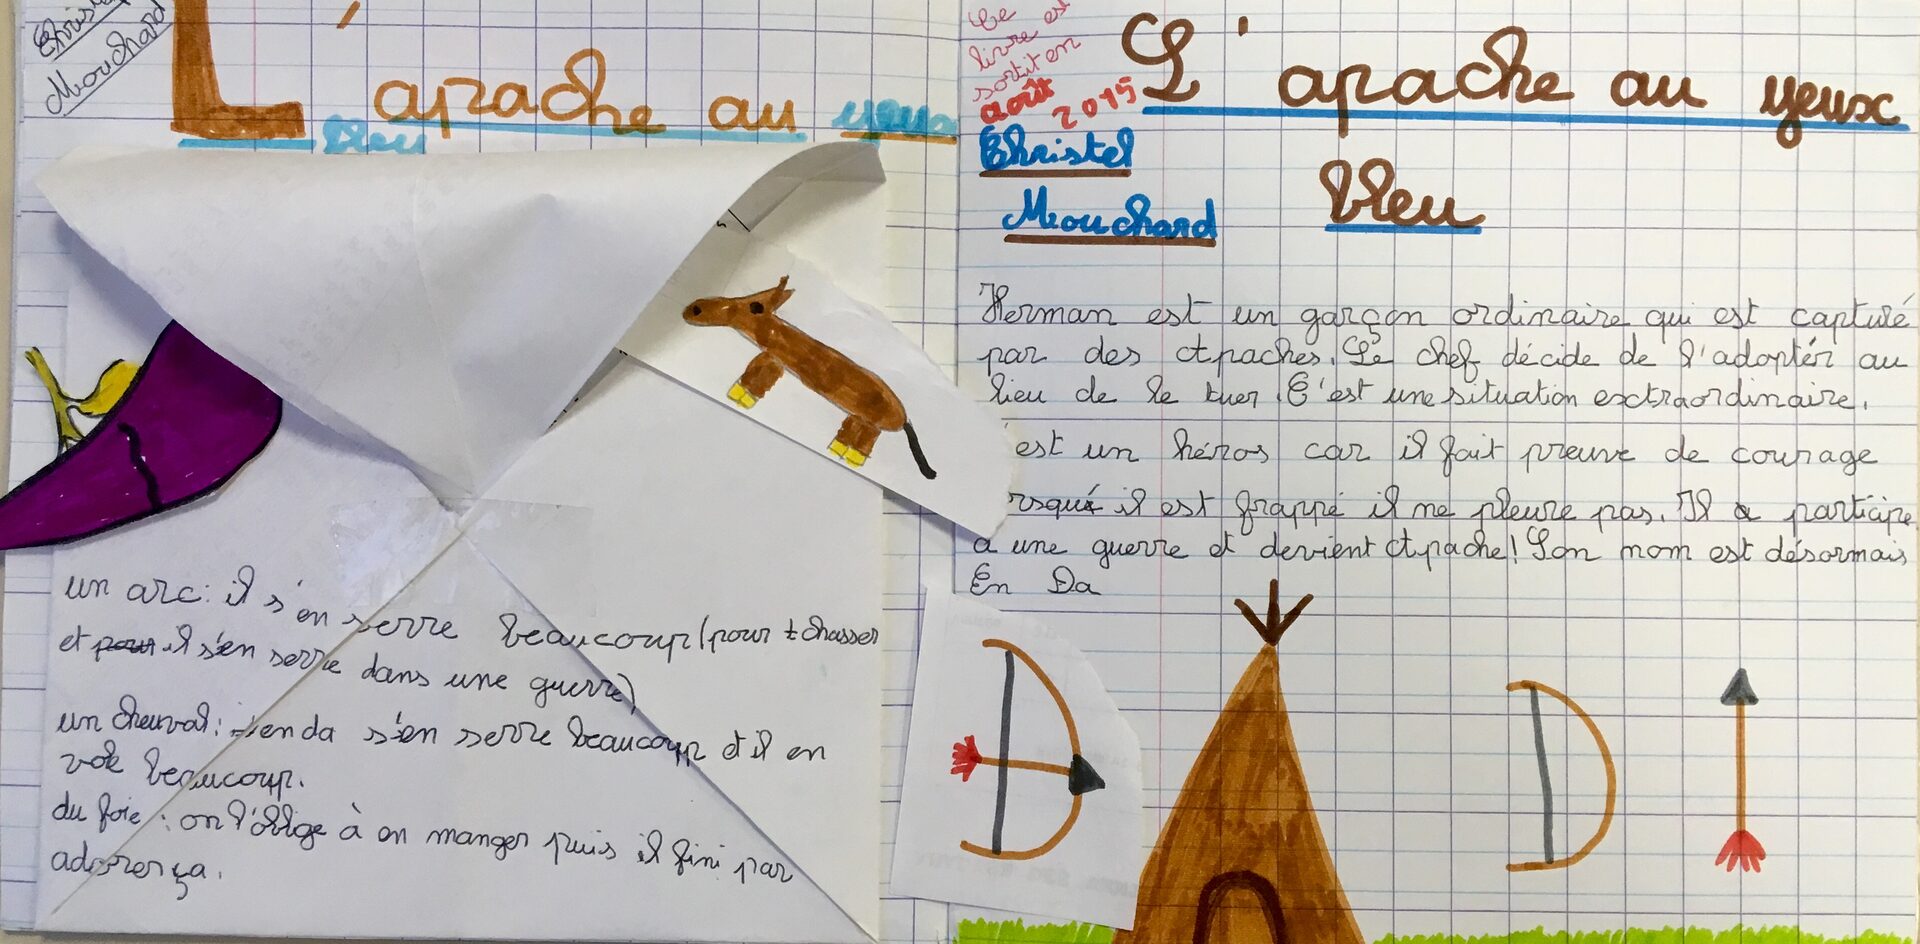 Christel
Mouchard
L'apache au yeux
bleu
un arc : il s'en serre beaucoup (pour chasser
et pour il s'en serre dans une guerre)
un cheuval : enda s'en serre beaucoup et il en
vole beaucoup.
du foie : on l'oblige à en manger puis il fini par
adorer ça.
Ce
livre est
sortit en
août
2015
Christel
Mouchard
L'apache au yeux
bleu
Herman est un garçon ordinaire qui est capturé
par des Apaches. Le chef décide de l'adopter au
lieu de le tuer. C'est une situation extraordinaire.
'est un héros car il fait preuve de courage
rsque il est frappé il ne pleure pas. Il a participe
a une guerre et devient Apache! Son nom est désormais
En Da